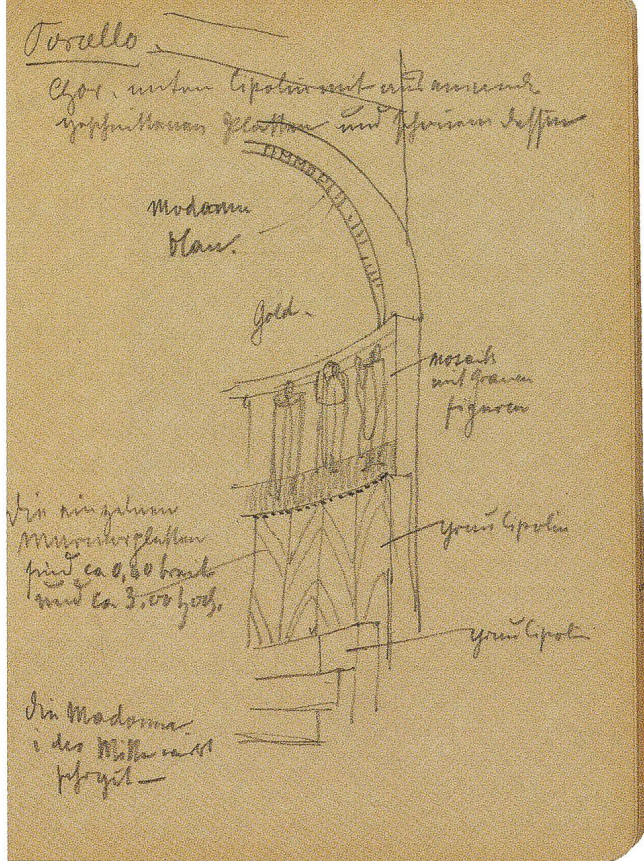 Torcello
Chor. unten Cipolin mit auseinander
geschnittenen Platten und
Madonna
blau.
Gold.
Mosaik
mit grauen
figuren
die einzelnen
Marmorplatten
sind ca 0,60 breit
und ca 3.00 hoch.
grau Cipolin
grau Cipolin
die Madonna
i der Mitte wirkt
sehr gut —